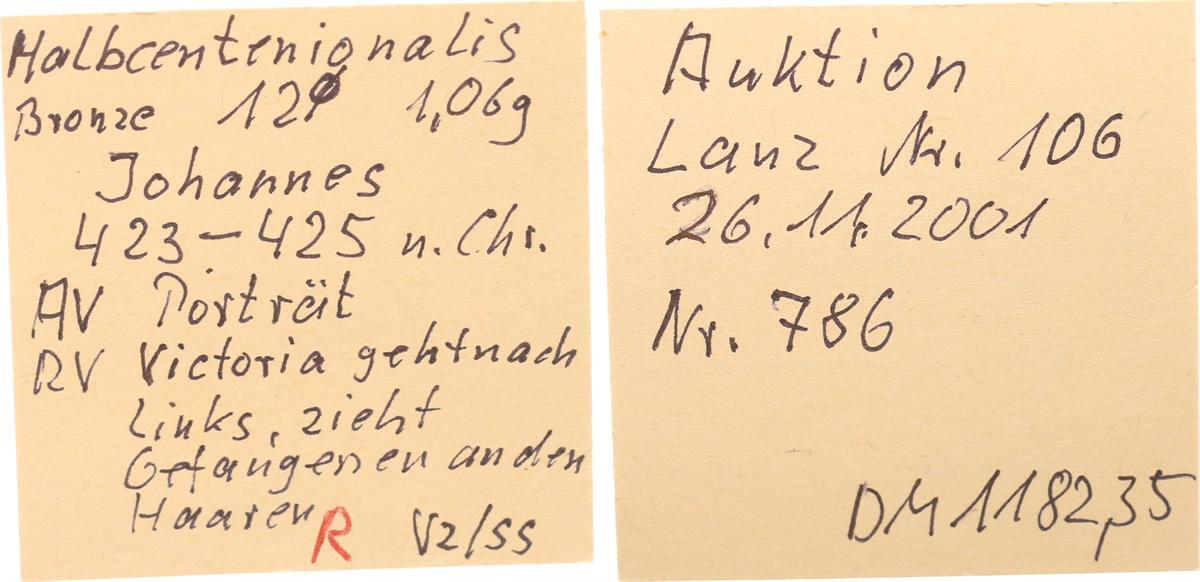 Halbcentenionalis
Bronze 12φ 1,06g
Johannes
423-425 n.Chr.
AV Porträt
RV Victoria geht nach
Links, zieht
Gefangenen an den
Haaren R Vz/ss
Auktion
Lanz Nr. 106
26.11.2001
Nr. 786
DM 1182,35